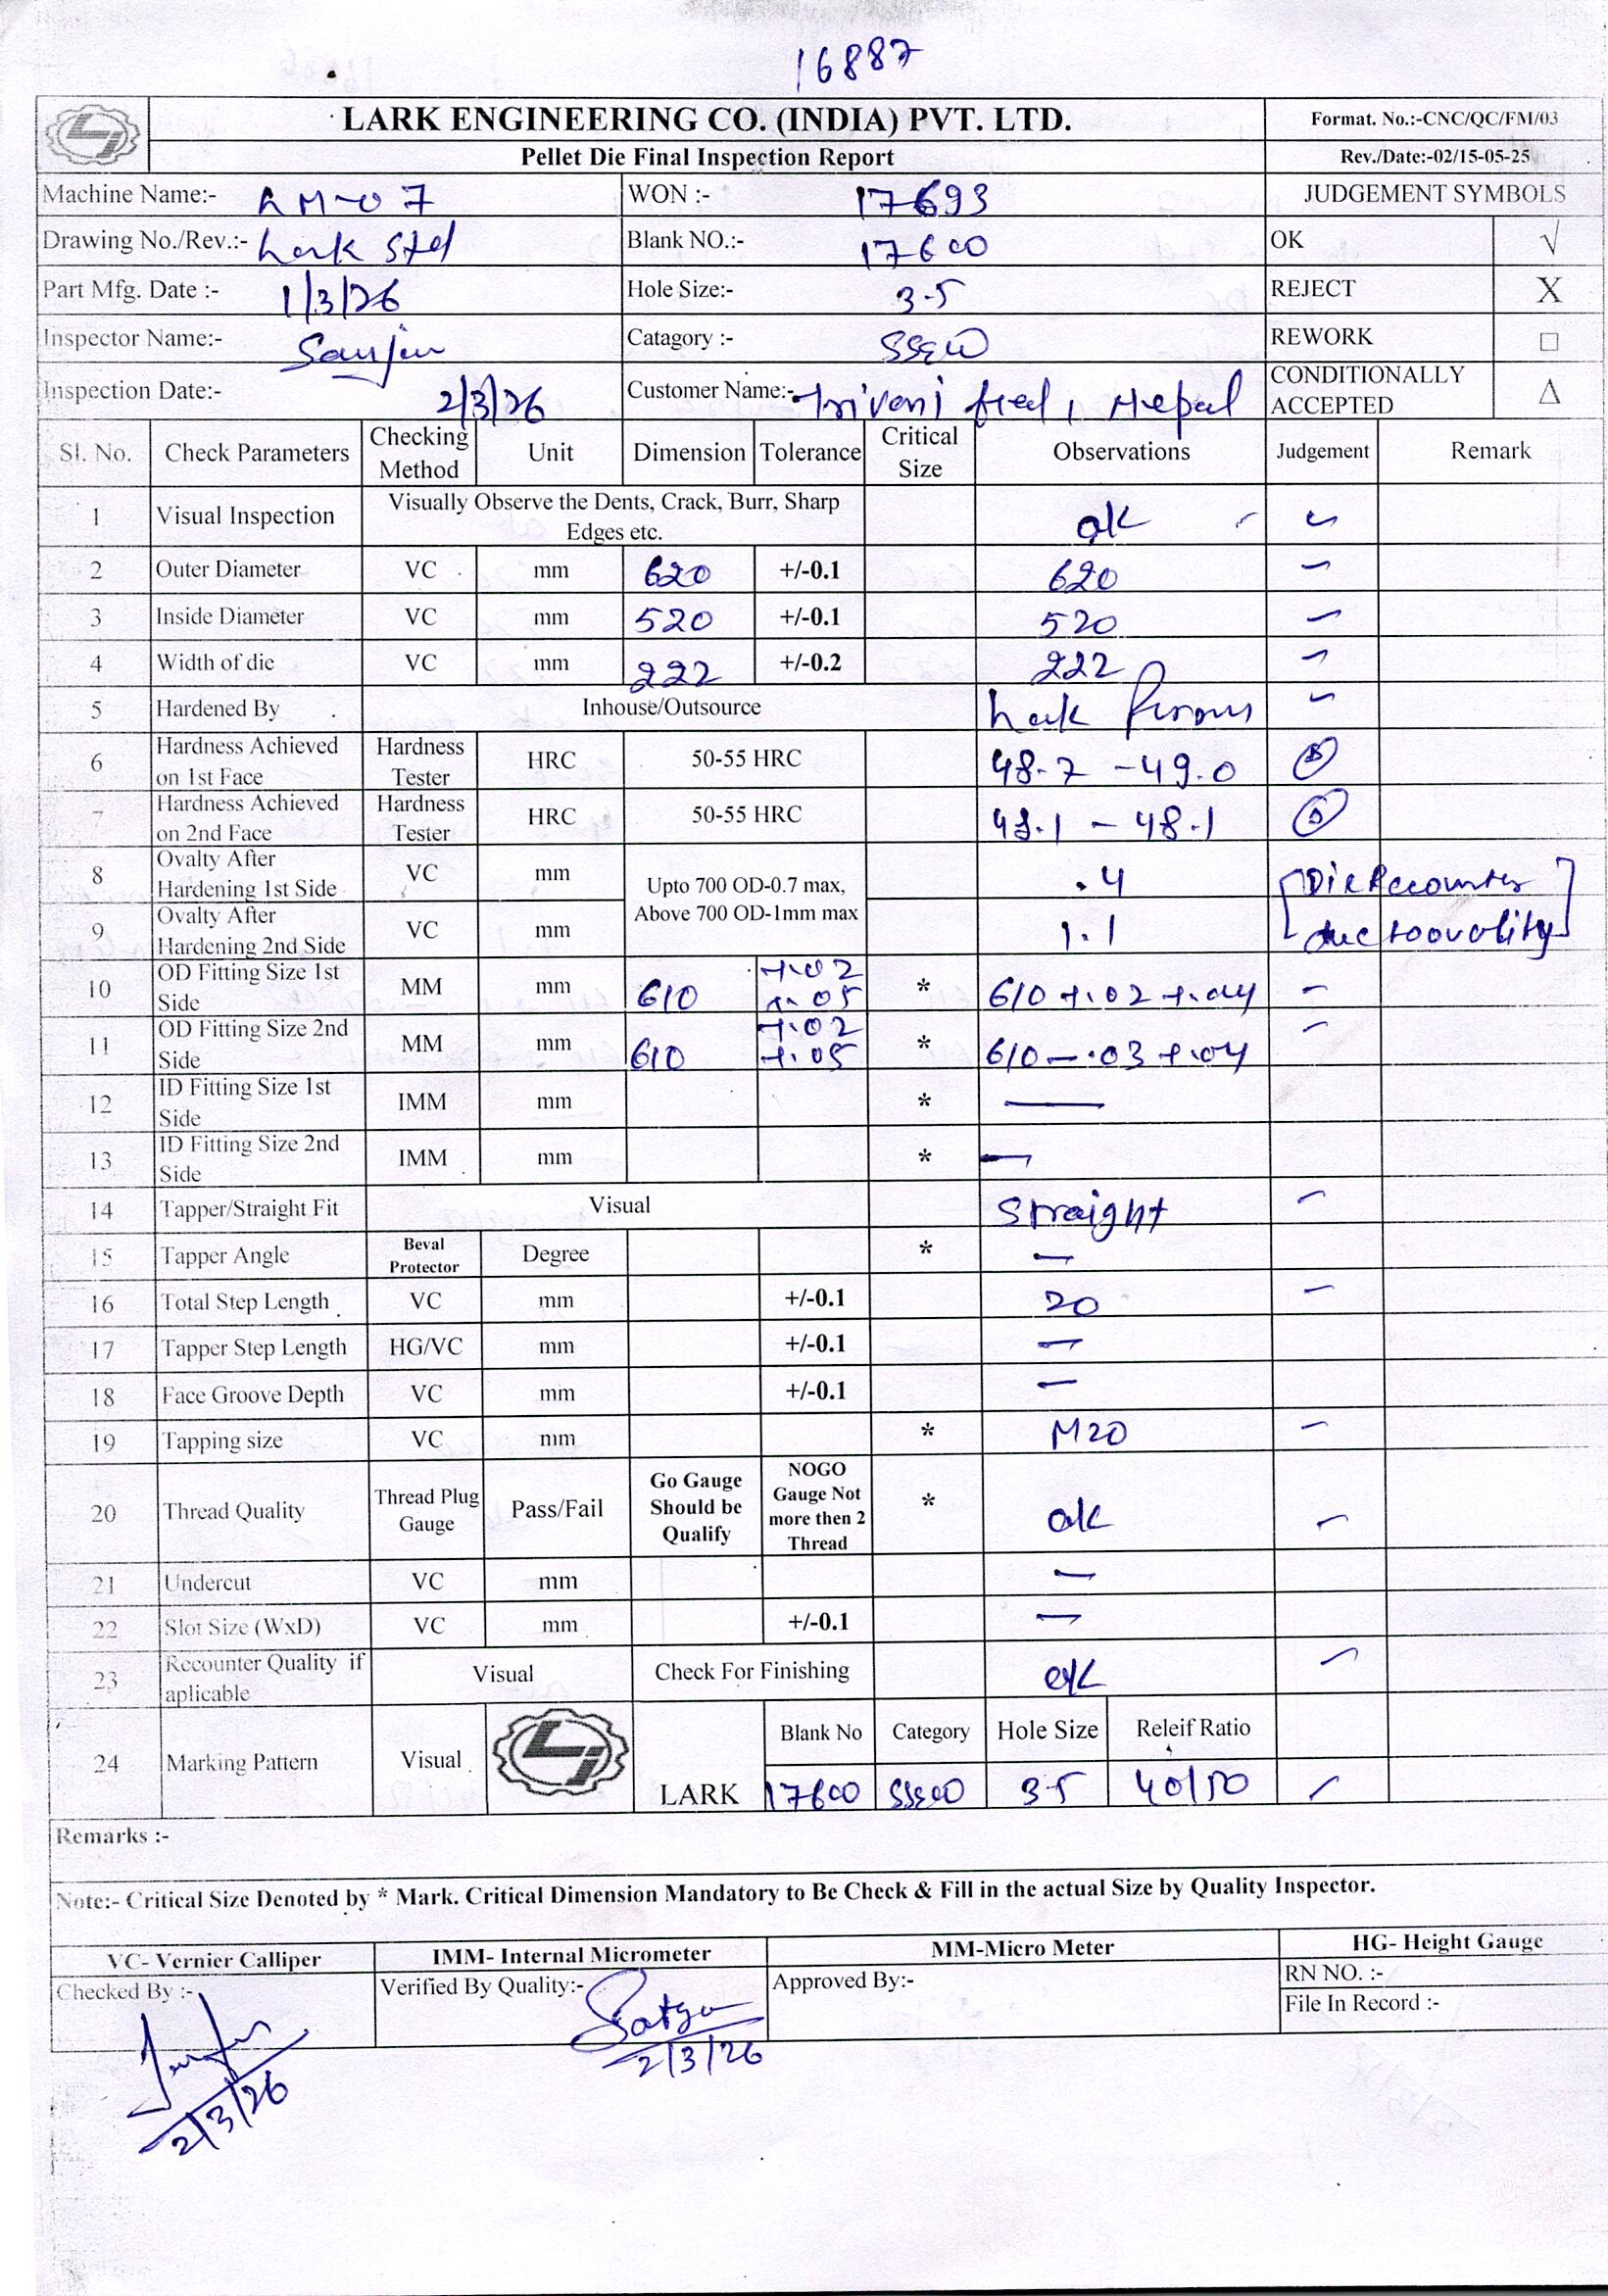 16887
LARK ENGINEERING CO. (INDIA) PVT. LTD.
Format. No.:-CNC/QC/FM/03
Pellet Die Final Inspection Report
Rev./Date:-02/15-05-25
Machine Name:- RM-07 WON :- 17693 JUDGEMENT SYMBOLS
Drawing No./Rev.:- Lark Std Blank NO.:- 17600 OK √
Part Mfg. Date :- 1/3/26 Hole Size:- 3.5 REJECT X
Inspector Name:- Catagory :- REWORK □
Inspection Date:- 2/3/26 Customer Name:- Triveni feed, Nepal CONDITIONALLY ACCEPTED Δ
Sl. No. Check Parameters Checking Method Unit Dimension Tolerance Critical Size Observations Judgement Remark
1 Visual Inspection Visually Observe the Dents, Crack, Burr, Sharp Edges etc. ok
2 Outer Diameter VC mm 620 +/-0.1 620
3 Inside Diameter VC mm 520 +/-0.1 520
4 Width of die VC mm 222 +/-0.2 222
5 Hardened By Inhouse/Outsource Lark
6 Hardness Achieved on 1st Face Hardness Tester HRC 50-55 HRC 48.7 - 49.0
7 Hardness Achieved on 2nd Face Hardness Tester HRC 50-55 HRC - 48.1
8 Ovalty After Hardening 1st Side VC mm Upto 700 OD-0.7 max, Above 700 OD-1mm max .4 [Die Recounter
9 Ovalty After Hardening 2nd Side VC mm 1.1 due to ovality]
10 OD Fitting Size 1st Side MM mm 610 +.02 +.05 * 610 +.02 +.04
11 OD Fitting Size 2nd Side MM mm 610 +.02 +.05 * 610 -.03 +.04
12 ID Fitting Size 1st Side IMM mm * —
13 ID Fitting Size 2nd Side IMM mm * —
14 Tapper/Straight Fit Visual Straight
15 Tapper Angle Beval Protector Degree * —
16 Total Step Length VC mm +/-0.1 20
17 Tapper Step Length HG/VC mm +/-0.1 —
18 Face Groove Depth VC mm +/-0.1 —
19 Tapping size VC mm * M20
20 Thread Quality Thread Plug Gauge Pass/Fail Go Gauge Should be Qualify NOGO Gauge Not more then 2 Thread * ok
21 Undercut VC mm —
22 Slot Size (WxD) VC mm +/-0.1 —
23 Recounter Quality if aplicable Visual Check For Finishing ok
24 Marking Pattern Visual LARK Blank No Category Hole Size Releif Ratio
17600 3.5
Remarks :-
Note:- Critical Size Denoted by * Mark. Critical Dimension Mandatory to Be Check & Fill in the actual Size by Quality Inspector.
VC- Vernier Calliper IMM- Internal Micrometer MM-Micro Meter HG- Height Gauge
Checked By :- Verified By Quality:- Satya Approved By:- RN NO. :-
File In Record :-
2/3/26
2/3/26